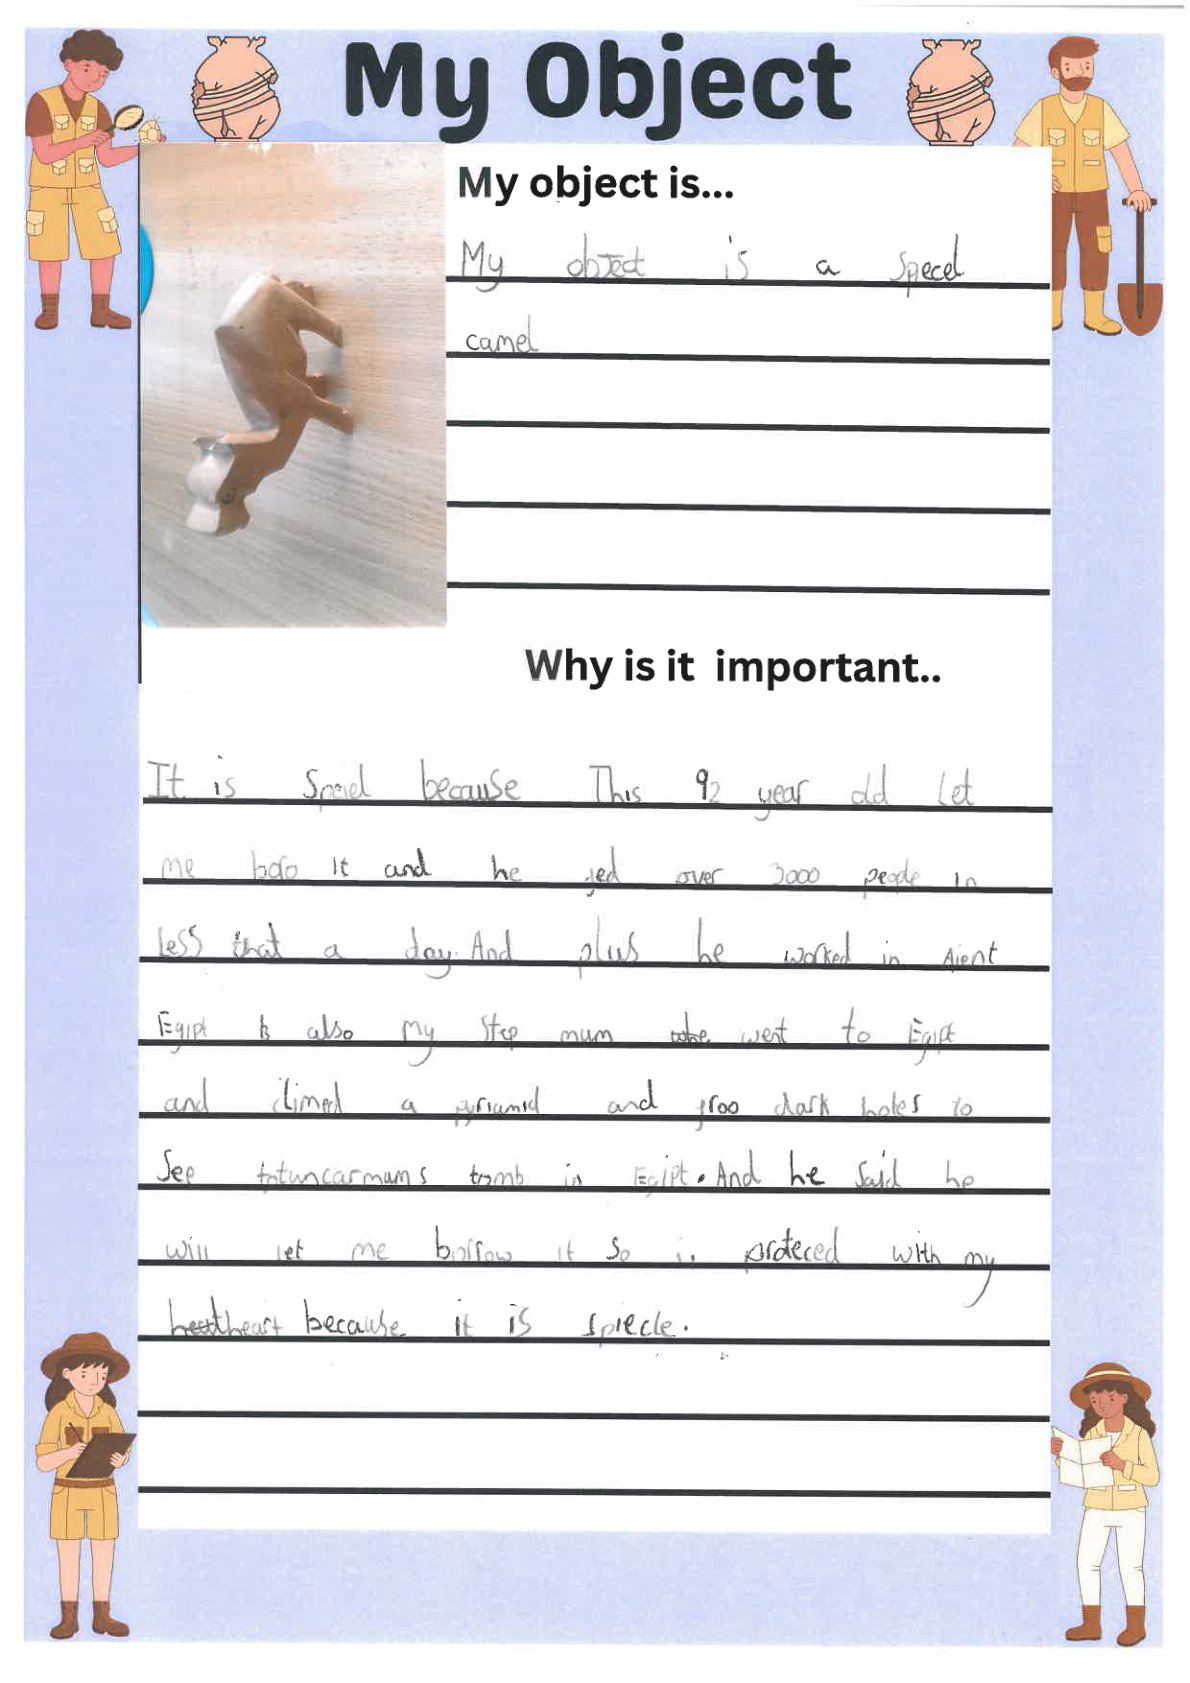 My Object
My object is...
My object is a specel
camel
Why is it important..
It is because This 92 year old let
me boro it and he over 3000 people in
less that a day. And plus he worked in Aient
Egipt also My Step mum went to Egipt
and climed a pyriamid and groo dark holes to
See tutuncarmums tomb in Egipt. And he Said he
will let me borrow it So proteced with my
heart because it is spiecle.